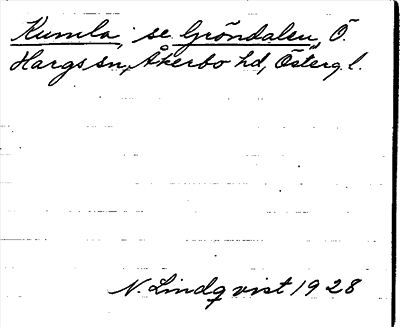 Kumla, se Gröndalen, Ö.
Hargs sn, Åkerbo hd, Österg. l.
N. Lindqvist 1928